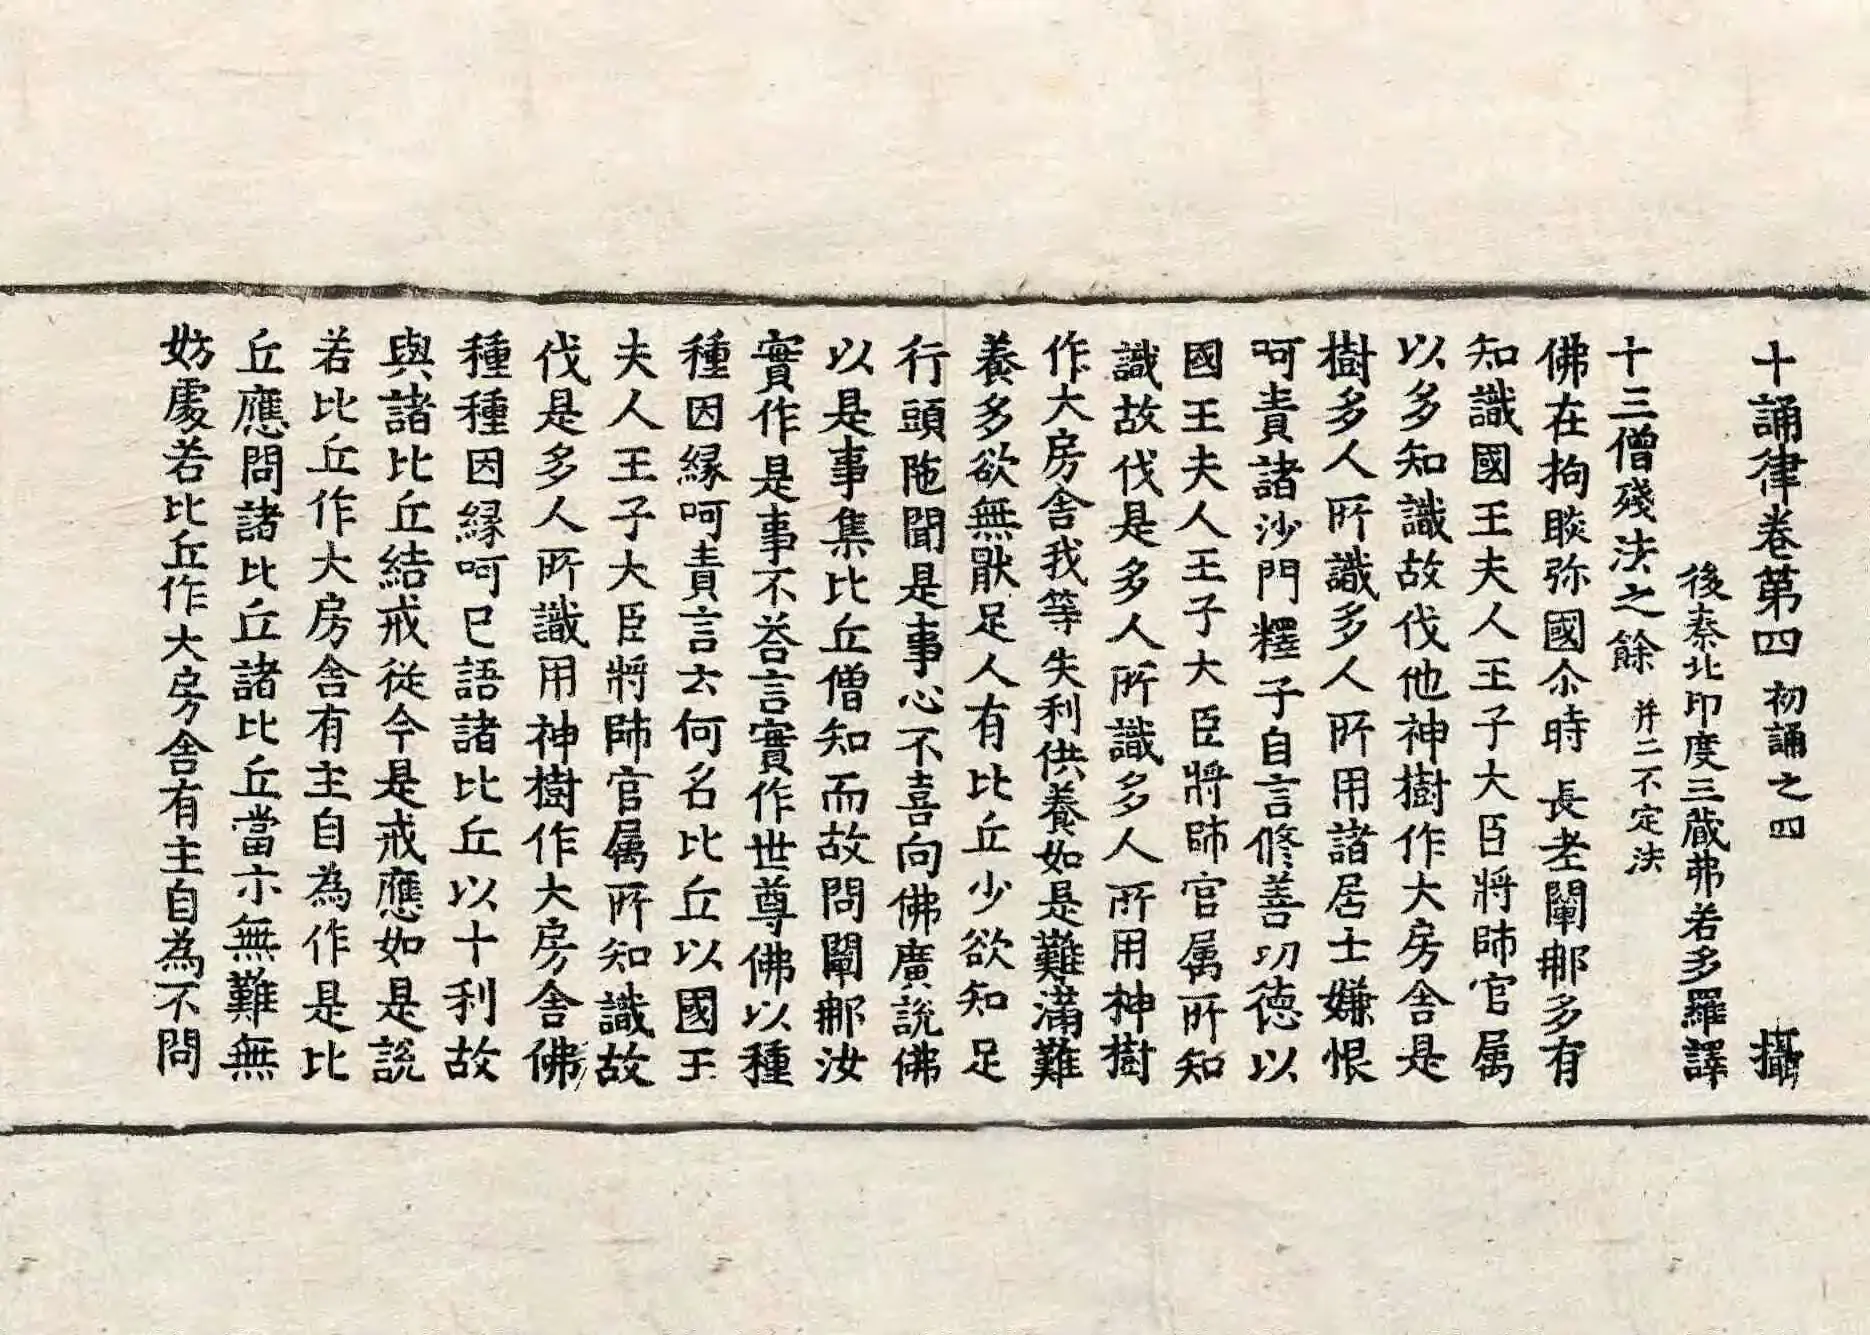 十誦律卷第四 初誦之四 攝
後秦北印度三藏弗若多羅譯
十三僧殘法之餘 并二不定法
佛在拘睒弥國尒時長老闡那多有
知識國王夫人王子大臣將帥官属
以多知識故伐他神樹作大房舍是
樹多人所識多人所用諸居士嫌恨
呵責諸沙門釋子自言修善功德以
國王夫人王子大臣將帥官属所知
識故伐是多人所識多人所用神樹
作大房舍我等失利供養如是難滿難
養多欲無猒足人有比丘少欲知足
行頭陁聞是事心不喜向佛廣說佛
以是事集比丘僧知而故問闡那汝
實作是事不荅言實作世尊佛以種
種因縁呵責言云何名比丘以國王
夫人王子大臣將帥官属所知識故
伐是多人所識用神樹作大房舍佛
種種因縁呵已語諸比丘以十利故
與諸比丘結戒從今是戒應如是說
若比丘作大房舍有主自為作是比
丘應問諸比丘諸比丘當示無難無
妨處若比丘作大房舍有主自為不問